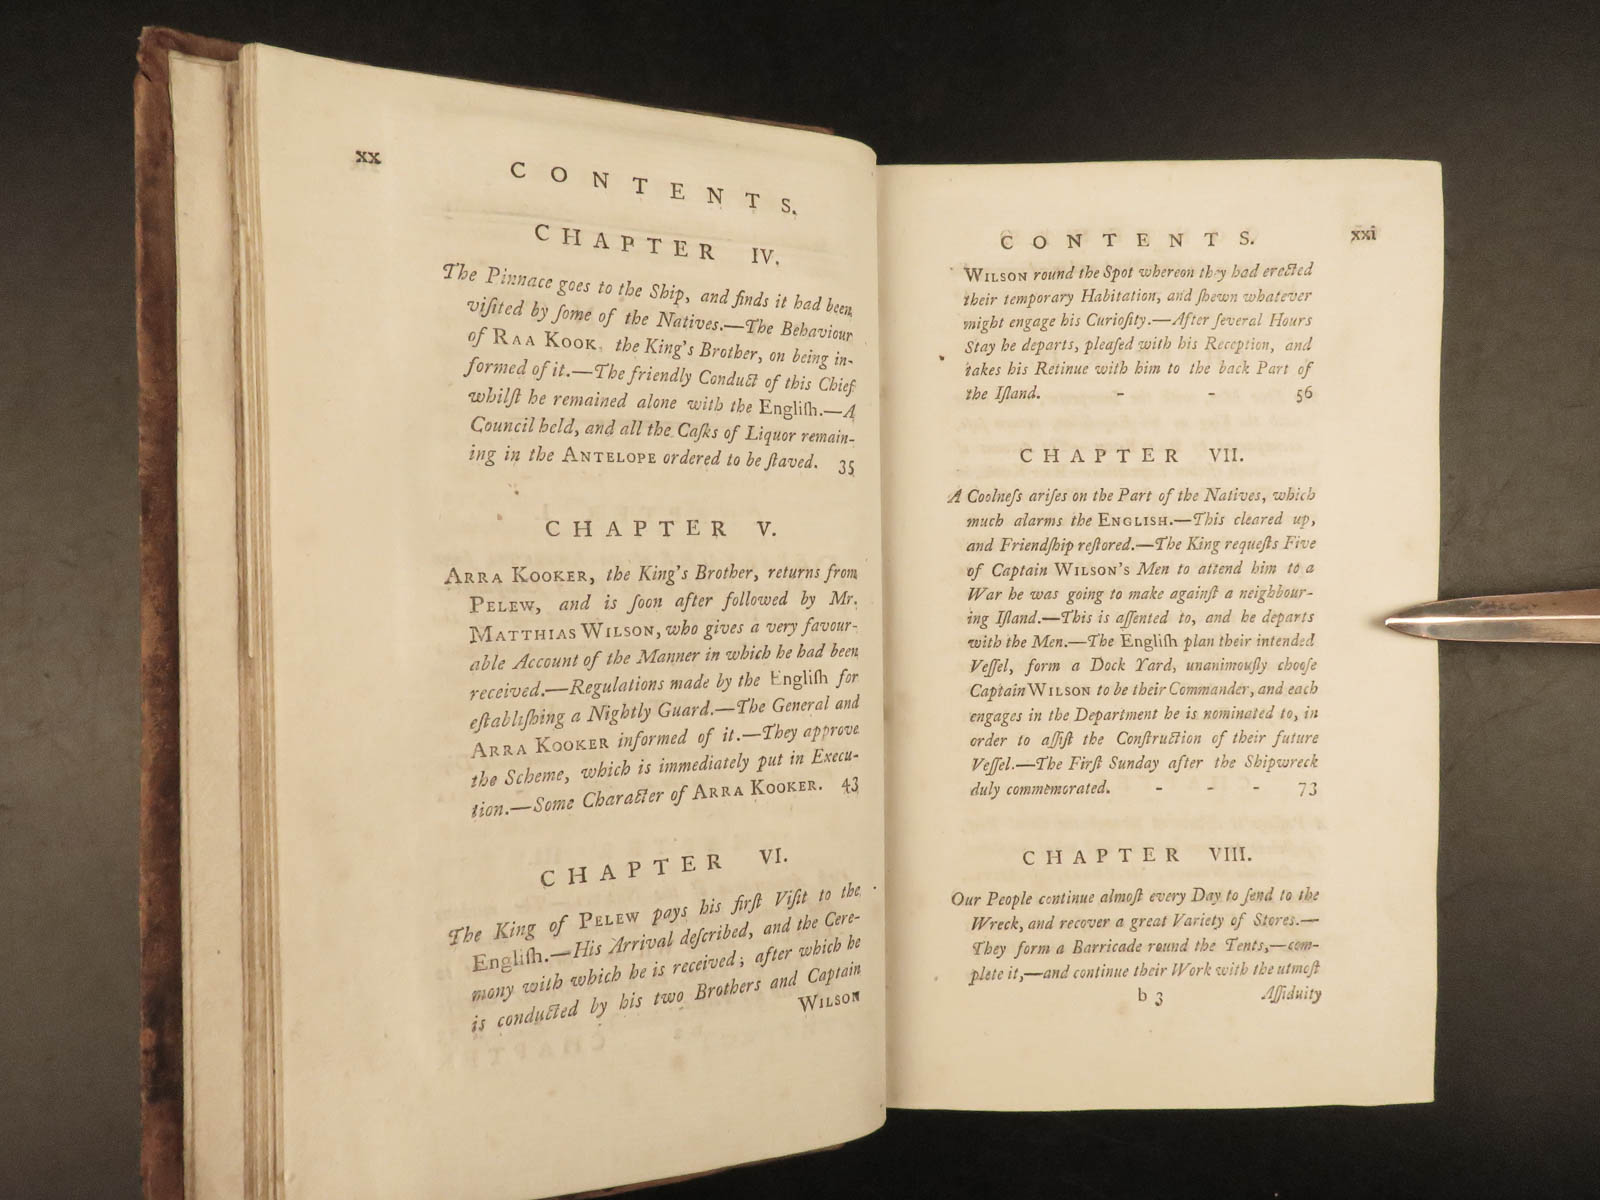 xx
CONTENTS.
CHAPTER IV.
The Pinnace goes to the Ship, and finds it had been
viſited by ſome of the Natives.—The Behaviour
of RAA KOOK the King's Brother, on being in-
formed of it.—The friendly Conduct of this Chief
whilſt he remained alone with the Engliſh.—A
Council held, and all the Caſks of Liquor remain-
ing in the ANTELOPE ordered to be ſtaved. 35
CHAPTER V.
ARRA KOOKER, the King's Brother, returns from
PELEW, and is ſoon after followed by Mr.
MATTHIAS WILSON, who gives a very favour-
able Account of the Manner in which he had been
received.—Regulations made by the Engliſh for
eſtabliſhing a Nightly Guard.—The General and
ARRA KOOKER informed of it.—They approve
the Scheme, which is immediately put in Execu-
tion.—Some Character of ARRA KOOKER. 43
CHAPTER VI.
The King of PELEW pays his firſt Viſit to the
Engliſh.—His Arrival deſcribed, and the Cere-
mony with which he is received; after which he
is conducted by his two Brothers and Captain
WILSON
CONTENTS. xxi
WILSON round the Spot whereon they had erected
their temporary Habitation, and ſhewn whatever
might engage his Curioſity.—After ſeveral Hours
Stay he departs, pleaſed with his Reception, and
takes his Retinue with him to the back Part of
the Iſland. - - 56
CHAPTER VII.
A Coolneſs ariſes on the Part of the Natives, which
much alarms the ENGLISH.—This cleared up,
and Friendſhip reſtored.—The King requeſts Five
of Captain WILSON'S Men to attend him to a
War he was going to make againſt a neighbour-
ing Iſland.—This is aſſented to, and he departs
with the Men.—The Engliſh plan their intended
Veſſel, form a Dock Yard, unanimouſly chooſe
Captain WILSON to be their Commander, and each
engages in the Department he is nominated to, in
order to aſſiſt the Conſtruction of their future
Veſſel.—The Firſt Sunday after the Shipwreck
duly commemorated. - - - 73
CHAPTER VIII.
Our People continue almoſt every Day to ſend to the
Wreck, and recover a great Variety of Stores.—
They form a Barricade round the Tents,—com-
plete it,—and continue their Work with the utmoſt
b 3 Aſſiduity